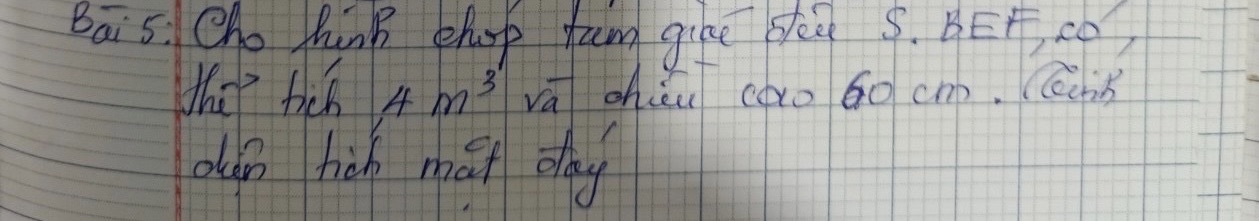 Bài 5: Cho hình chóp tam giác đều S. BEF, có
thể tích 4 m³ và chiều cao 60 cm. Tính
diện tích mặt đáy